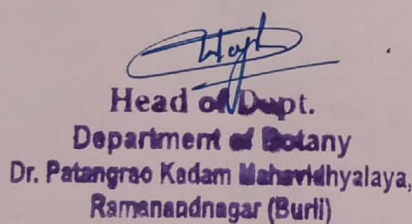 Head of Dept.
Department of Botany
Dr. Patangrao Kadam Mahavidhyalaya,
Ramanandnagar (Burli)